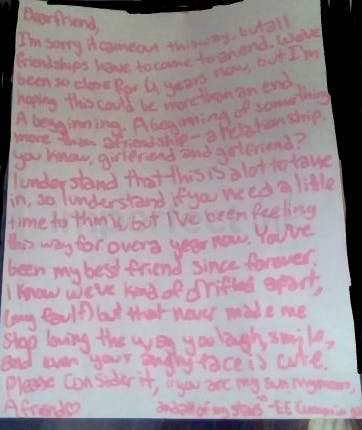 Dear friend,
I'm sorry it came out this way. but all
friendships have to come to an end. We've
been so close for 4 years now, but I'm
hoping this could be more than an end
A begginning. A beginning of something
more than a friendship - a relationship.
you know, girlfriend and girlfriend?
I understand that this is a lot to take
in, so I understand if you need a little
time to think, but I've been feeling
this way for over a year now. You've
been my best friend since forever.
I know we've kind of drifted apart,
(my fault) but that never made me
stop loving the way you laugh, smile,
and even your angry face is cute.
Please consider it, "you are my sun my moon,
A friend♡ and all of my stars" -EE Cummings